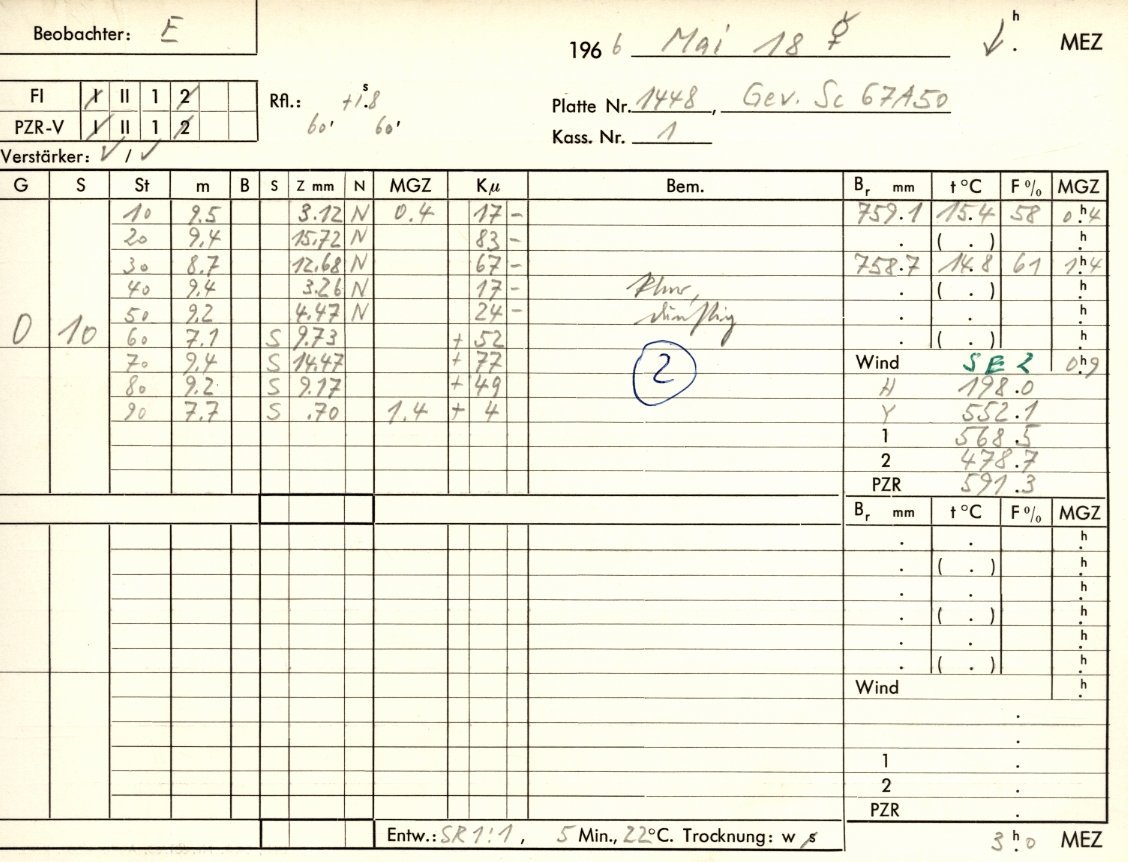 Beobachter: E
196 6 Mai 18 ☿ ↓ h . MEZ
FI I II 1 2
PZR-V I II 1 2
Rfl.: +1.8 s
60' 60'
Platte Nr. 1448, Gev. Sc 67A50
Kass. Nr. 1
Verstärker: ✓ / ✓
G S St m B S Z mm N MGZ Kμ Bem. Br mm t °C F % MGZ
10 9.5 3.12 N 0.4 17 - 759.1 15.4 58 0h.4
20 9.4 15.72 N 83 - . ( . ) h.
30 8.7 12.68 N 67 - 758.7 14.8 61 1h.4
40 9.4 3.26 N 17 - . ( . ) h.
50 9.2 4.47 N 24 - dunstig . . h.
0 10 60 7.1 S 9.73 + 52 . ( . ) h.
70 9.4 S 14.47 + 77 2 Wind SE 2 0h.9
80 9.2 S 9.17 + 49 H 198.0
90 7.7 S .70 1.4 + 4 Y 552.1
1 568.5
2 478.7
PZR 591.3
Br mm t °C F % MGZ
. . h.
. ( . ) h.
. . h.
. ( . ) h.
. . h.
. ( . ) h.
Wind h.
.
.
1 .
2 .
PZR .
Entw.: SR 1:1, 5 Min., 22°C. Trocknung: w s 3h.0 MEZ